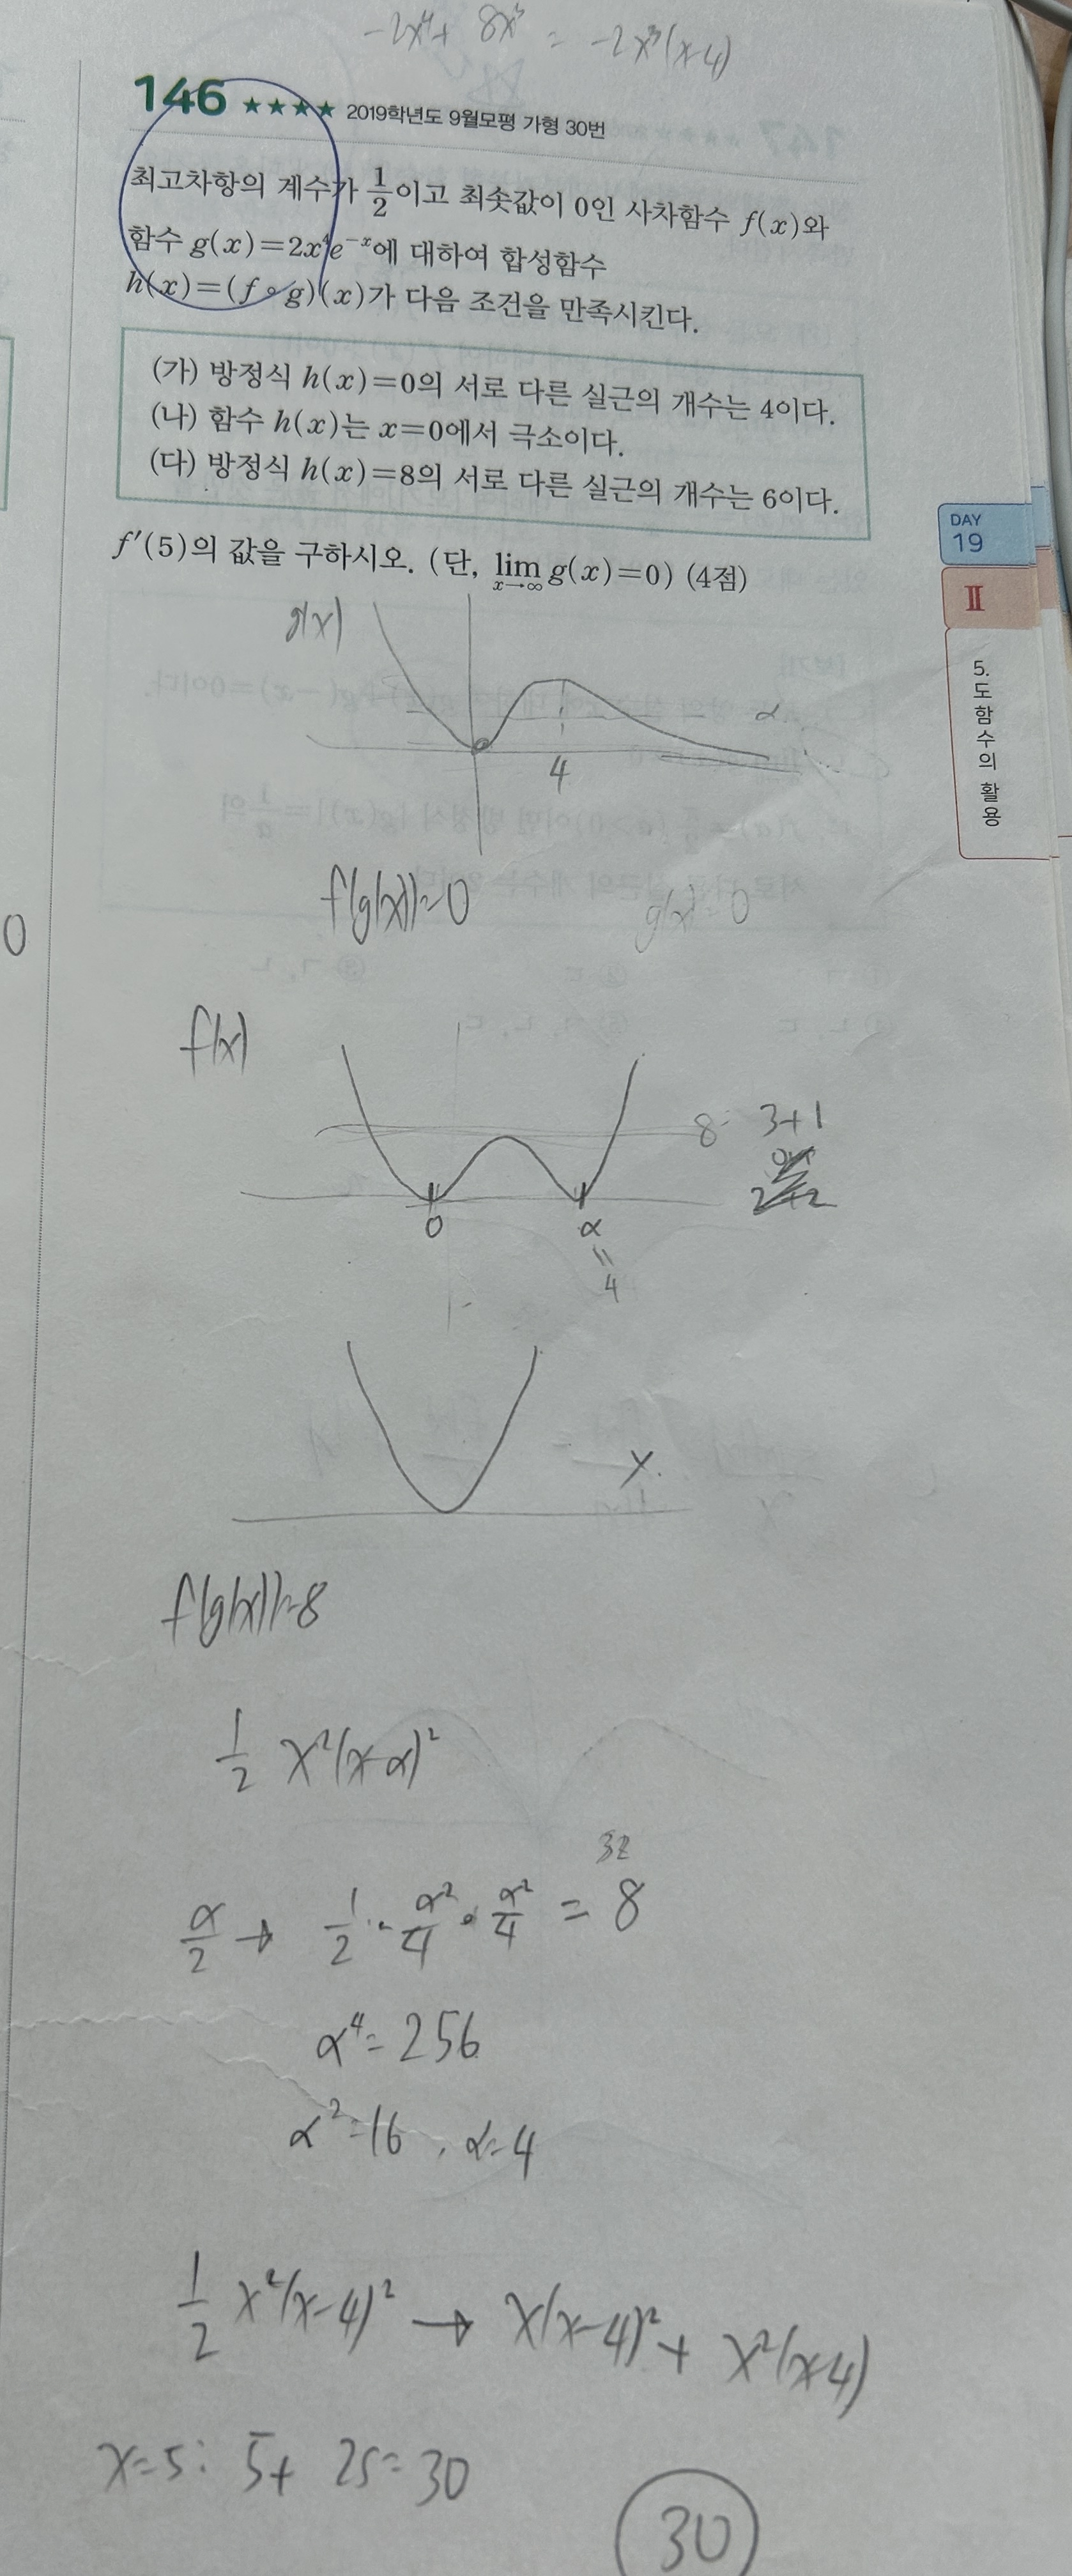 -2x⁴+ 8x³ = -2x³(x-4)
146 ★★★★ 2019학년도 9월모평 가형 30번
최고차항의 계수가 1/2이고 최솟값이 0인 사차함수 f(x)와
함수 g(x)=2x⁴e⁻ˣ에 대하여 합성함수
h(x)=(f∘g)(x)가 다음 조건을 만족시킨다.
(가) 방정식 h(x)=0의 서로 다른 실근의 개수는 4이다.
(나) 함수 h(x)는 x=0에서 극소이다.
(다) 방정식 h(x)=8의 서로 다른 실근의 개수는 6이다.
f′(5)의 값을 구하시오. (단, lim x→∞ g(x)=0) (4점)
DAY
19
Ⅱ
5.
도함수의 활용
g(x)
α
4
f(g(x))=0
g(x)=0
0
f(x)
8
3+1
2+2
0
α
=
4
x.
f(g(x))=8
1/2 x²(x-α)²
32
α/2 → 1/2 · α²/4 · α²/4 = 8
α⁴=256
α²=16, α=4
1/2 x²(x-4)² → x(x-4)²+ x²(x-4)
x=5: 5+ 25=30
30